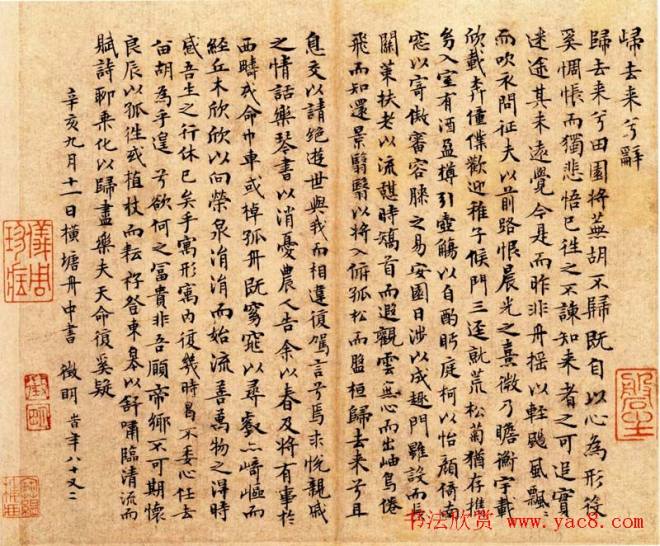 歸去来兮辭
歸去来兮田園将蕪胡不歸既自以心為形役
奚惆悵而獨悲悟已往之不諫知来者之可追實
迷途其未遠覺今是而昨非舟摇以輕颺風飄
而吹衣問征夫以前路恨晨光之熹微乃瞻衡宇載
欣載奔僮僕歡迎稚子候門三逕就荒松菊猶存携
幼入室有酒盈樽引壺觴以自酌眄庭柯以怡顔倚南
窓以寄傲審容膝之易安園日涉以成趣門雖設而長
關策扶老以流憩時矯首而遐觀雲無心而出岫鳥倦
飛而知還景翳翳以将入俯孤松而盤桓歸去来兮且
息交以請絶遊世與我而相違復駕言兮焉求悦親戚
之情話樂琴書以消憂農人告余以春及将有事於
西疇或命巾車或棹孤舟既窈窕以尋壑亦崎嶇而
經丘木欣欣以向榮泉涓涓而始流善萬物之得時
感吾生之行休已矣乎寓形寓内復幾時曷不委心任去
留胡為乎遑兮欲何之冨貴非吾願帝鄉不可期懷
良辰以孤往或植杖而耘耔登東皋以舒嘯臨清流而
賦詩聊乗化以歸盡樂夫天命復奚疑
辛亥九月十一日横塘舟中書 徵明 時年八十又二
徵明
书法欣赏 www.yac8.com